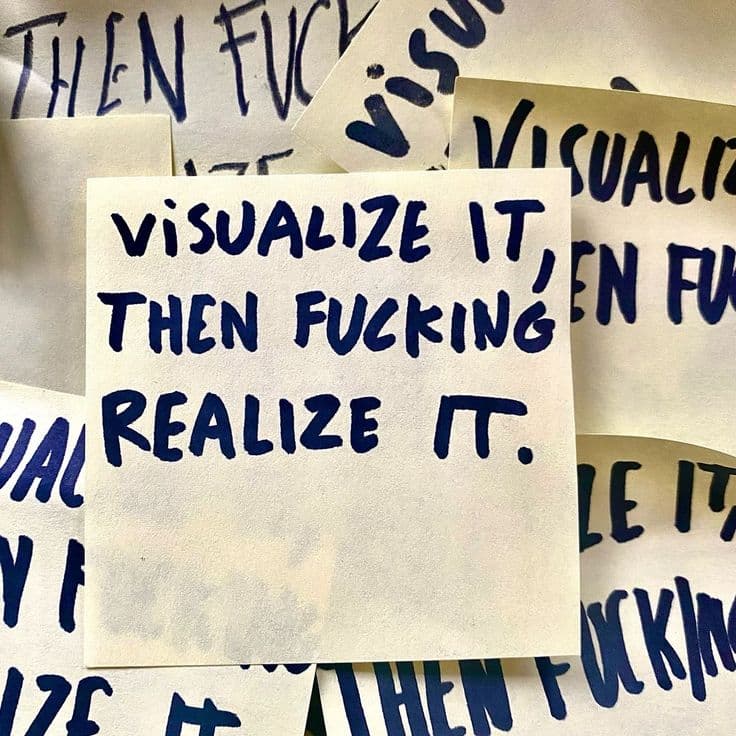 THEN FUC
ViSU
VISUALIZ
EN FU
ViSUALIZE IT,
THEN FUCKING
REALIZE IT.
UAL
IZE IT
LE IT,
THEN FUCK/N